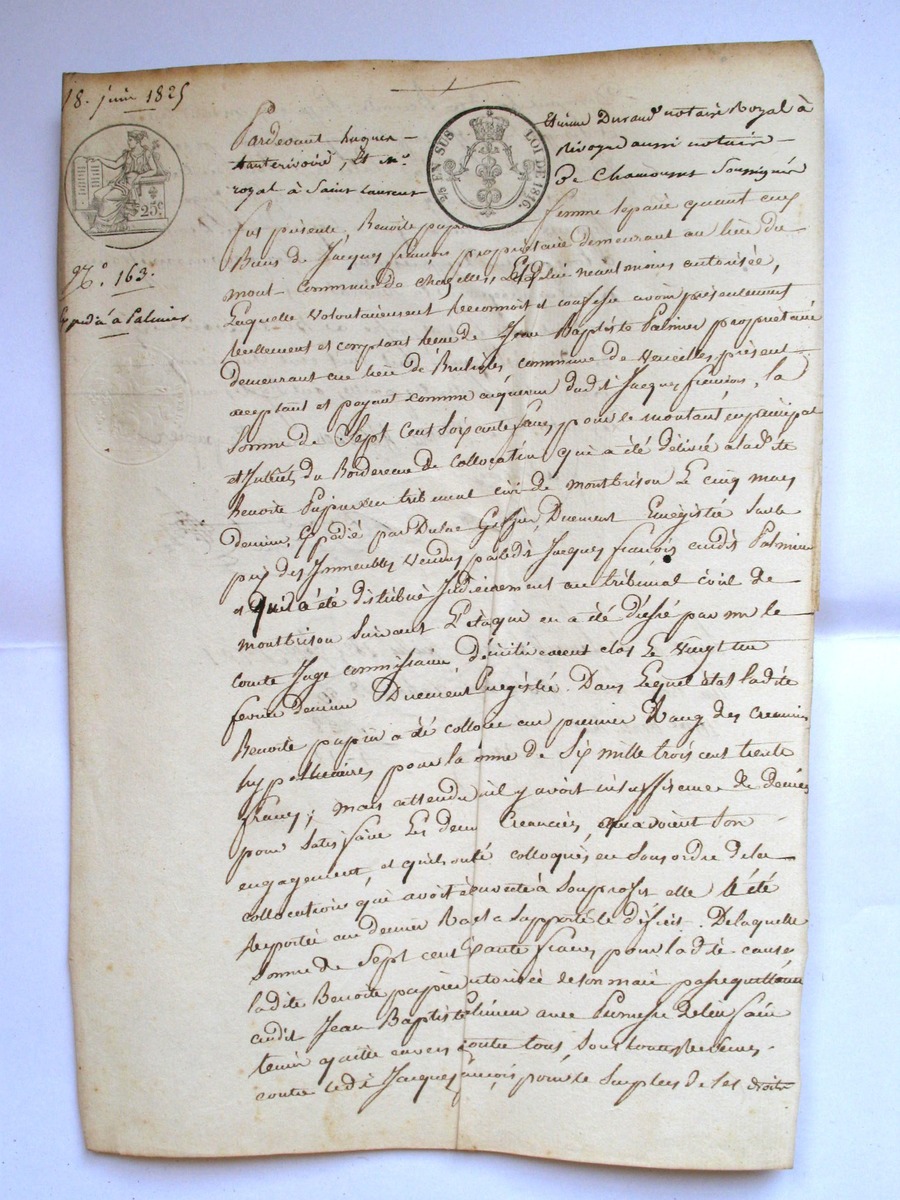 18. juin 1825
25 c
2/5 EN SUS LOI DE 1816.
N.o 163.
Expédié à Palmier
Pardevant hugues Etienne Durand notaire Royal à
hauterivoire, Et m.e Rivoyre aussi notaire
royal à Saint Laurent De Chamousset Soussignés
fut présente Benoite pupier femme separée quant aux
Biens de Jacques françois propriétaire demeurant au lieu du
mont Commune de chazelles, Et de lui néantmoins autorisée,
Laquelle volontairement Reconnoit et confesse avoir présentement
Réellement et comptant Reçu de Jean Baptiste Palmier propriétaire
demeurant au lieu de commune de présent
acceptant et payant comme acquereur dudit Jacques françois, la
Somme de Sept Cent Soixante francs pour le montant en principal
et Intérêts du Bordereau de Collocation qui a été délivré a ladite
Benoite Pupier au tribunal civil de montbrison Le cinq mars
dernier, Expédié par Dulac Greffier, Duement Enregistré Sur le
prix des Immeubles Vendus par ledit Jacques françois audit Palmier
et quil a été distribué Judiciairement au tribunal civil de
montbrison Suivant L'état qui en a été dressé par mr le
comte Juge commissaire, déffinitivement clos Le Vingt un
fevrier dernier Duement Enregistré. Dans Lequel état ladite
Benoite pupier a été colloquée au premier Rang des Creanciers
hypothécaires pour la somme de Six mille trois cent trente
francs; mais attendu qu'il y avoit insuffisance de deniers
pour Satisfaire Les deux Creanciers qui avoient Son
engagement, et qui ont été colloqués en Sous ordre de la
collocation qui avoit été ouverte à Son profit elle a été
Reportée au dernier Rang et a Supporté le déficit. De laquelle
Somme de Sept cent Soixante francs pour la dite cause
ladite Benoite pupier autorisée de son mari passe quittance
audit Jean Baptiste Palmier avec Promesse de l'en faire
tenir quitte envers et contre tous, Sous toutes Reserves
contre ledit Jacques françois pour le Surplus de Ses droits